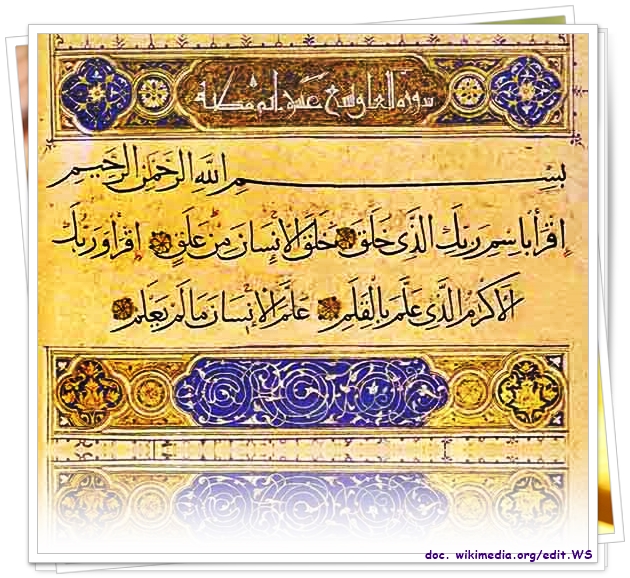 سورة العلق تسع عشرة اية مكية
بِسْمِ اللَّهِ الرَّحْمَنِ الرَّحِيمِ
اِقْرَأْ بِاسْمِ رَبِّكَ الَّذِي خَلَقَ خَلَقَ الْإِنْسَانَ مِنْ عَلَقٍ اِقْرَأْ وَرَبُّكَ
الْأَكْرَمُ الَّذِي عَلَّمَ بِالْقَلَمِ عَلَّمَ الْإِنْسَانَ مَا لَمْ يَعْلَمْ
doc. wikimedia.org/edit.WS